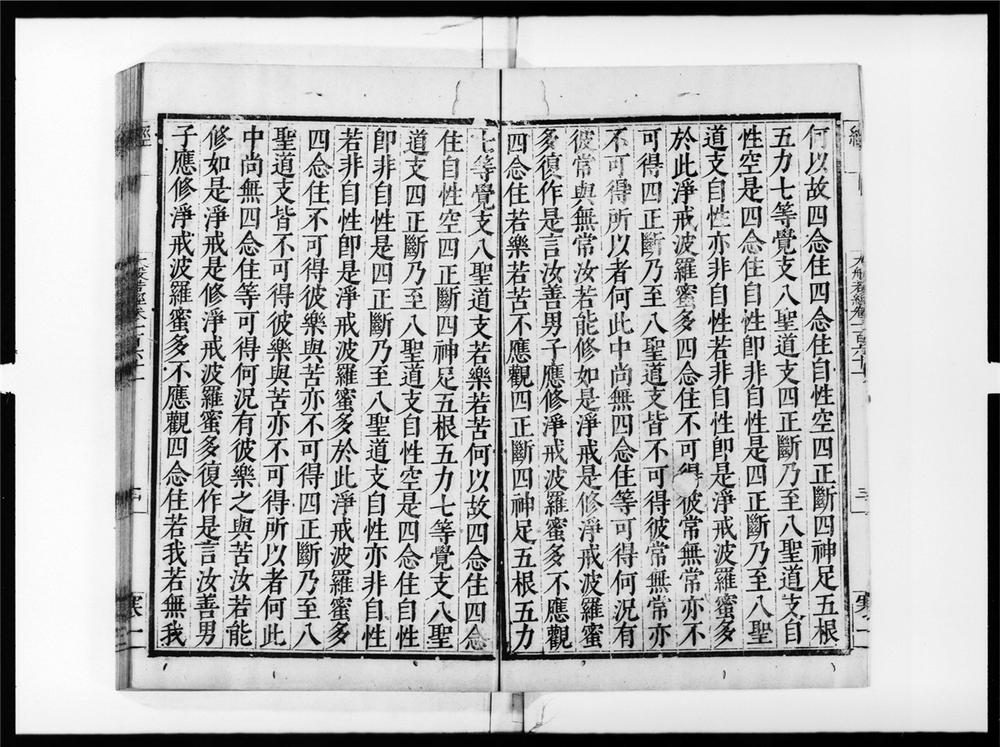 何以故四念住四念住自性空四正斷四神足五根
五力七等覺支八聖道支四正斷乃至八聖道支自
性空是四念住自性卽非自性是四正斷乃至八聖
道支自性亦非自性若非自性卽是淨戒波羅蜜多
於此淨戒波羅蜜多四念住不可得彼常無常亦不
可得四正斷乃至八聖道支皆不可得彼常無常亦
不可得所以者何此中尚無四念住等可得何況有
彼常與無常汝若能修如是淨戒是修淨戒波羅蜜
多復作是言汝善男子應修淨戒波羅蜜多不應觀
四念住若樂若苦不應觀四正斷四神足五根五力
七等覺支八聖道支若樂若苦何以故四念住四念
住自性空四正斷四神足五根五力七等覺支八聖
道支四正斷乃至八聖道支自性空是四念住自性
卽非自性是四正斷乃至八聖道支自性亦非自性
若非自性卽是淨戒波羅蜜多於此淨戒波羅蜜多
四念住不可得彼樂與苦亦不可得四正斷乃至八
聖道支皆不可得彼樂與苦亦不可得所以者何此
中尚無四念住等可得何況有彼樂之與苦汝若能
修如是淨戒是修淨戒波羅蜜多復作是言汝善男
子應修淨戒波羅蜜多不應觀四念住若我若無我